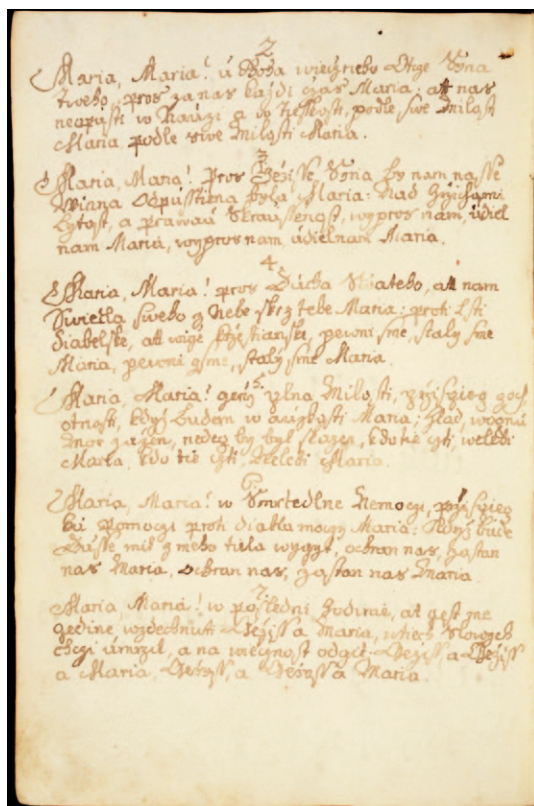 2
Maria, Maria! ú Boha wiecžneho Otcze Syna
tweho, pros za nas každi cžas Maria: att nas
neopusti w Nauzi a w Tesklosti, podle swe Milosti
Maria, podle swe Milosti Maria.
3
Maria, Maria! pros Gežisse, Syna by nam nasse
Winna Odpusstiena byla Maria: Nad hržichami
Lytost, a prawau Skraussenost, wypros nam, udiel
nam Maria, wypros nam, udiel nam Maria.
4.
Maria, Maria! pros Ducha Swateho, att nam
Swietla sweho z Nebe skrz tebe Maria: proti Lsti
diabelske, att wirže Kržestianske, pewni sme, staly sme
Maria, pewni gsme, staly sme Maria.
5.
Maria, Maria! genž plna Milosti,
otnosti, když budem w auzkosti Maria; hlad, wognu
Mor zažen, nedeg by byl skazen, kdo tie cžti, welebi
Maria, kdo tie cžti, Welebi Maria.
6.
Maria, Maria! w Smrtedlne Nemoczi,
ku pomoczy proti diabla moczy Maria: Když bude
Dusse mit z meho tiela wygyt, ochran nas, zastan
nas Maria, ochran nas, zastan nas Maria
7.
Maria, Maria! w posledni hodinie, at gest me
gedine wzdechnuti Gežiss a Maria, w tiech Slowych
chczi umržit, a na wiecžnost odgit Gežiss a Gežiss
a Maria, Gežiss, a Gežiss a Maria.